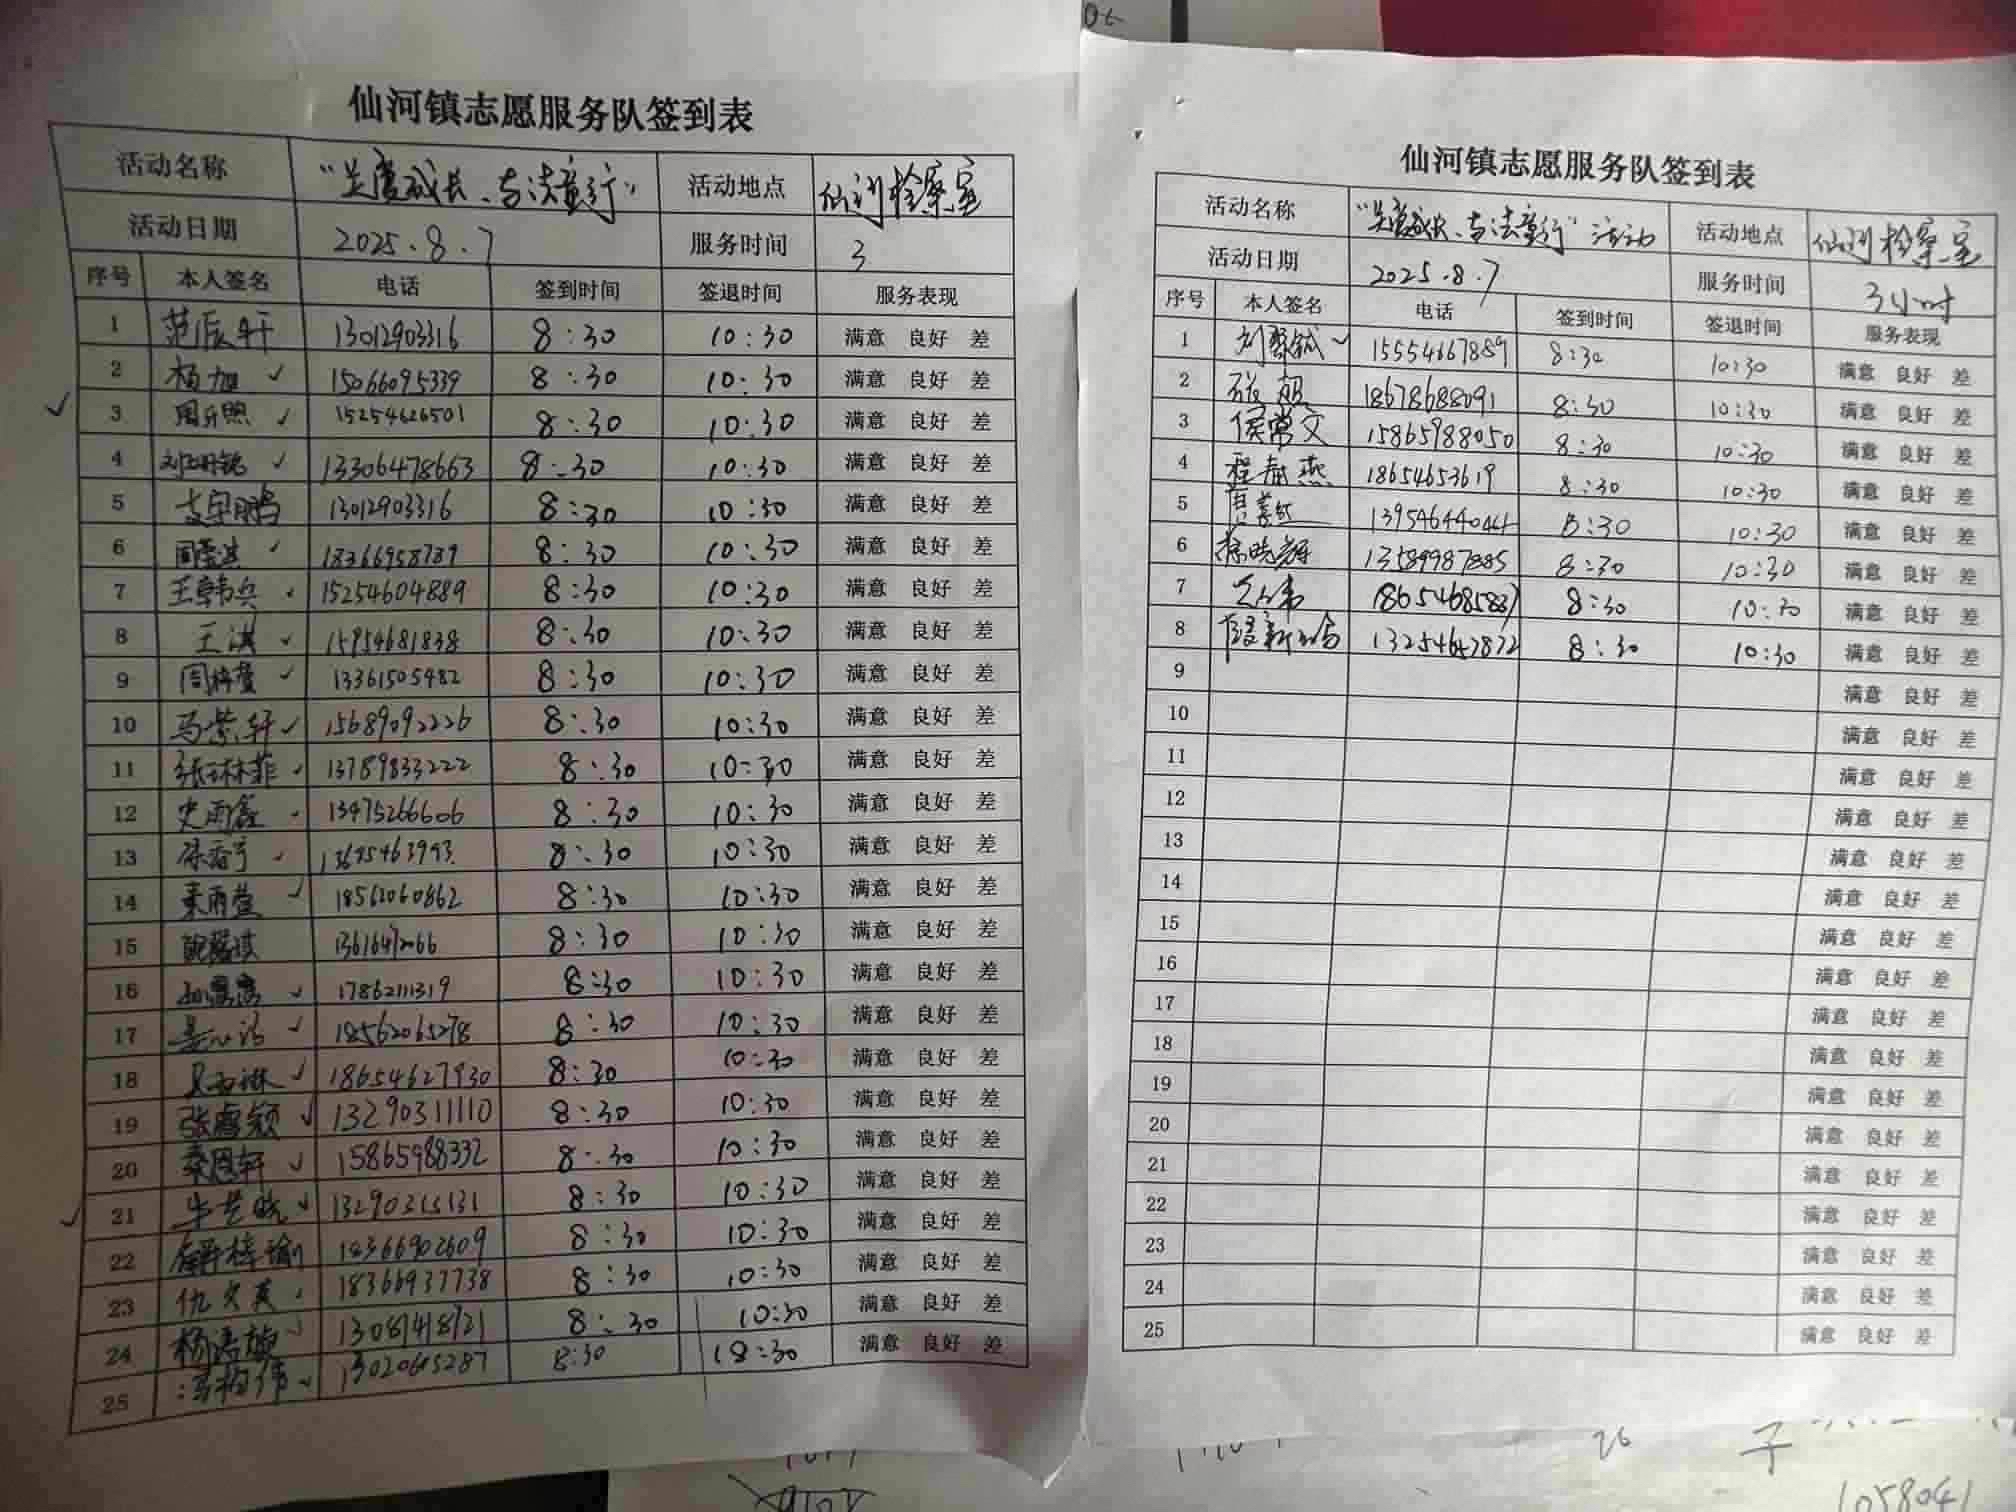 仙河镇志愿服务队签到表
活动名称 “关爱成长、与法童行” 活动地点 仙河检察室
活动日期 2025.8.7 服务时间 3
序号 本人签名 电话 签到时间 签退时间 服务表现
1 范辰轩 13012903316 8:30 10:30 满意 良好 差
2 杨旭 ✓ 15066095339 8:30 10:30 满意 良好 差
✓ 3 ✓ 15254626501 8:30 10:30 满意 良好 差
4 ✓ 13306478663 8:30 10:30 满意 良好 差
5 13012903316 8:30 10:30 满意 良好 差
6 18366958789 8:30 10:30 满意 良好 差
7 王韩兵 15254604889 8:30 10:30 满意 良好 差
8 王淇 ✓ 15954681838 8:30 10:30 满意 良好 差
9 ✓ 13361505482 8:30 10:30 满意 良好 差
10 马紫轩 ✓ 15689092226 8:30 10:30 满意 良好 差
11 张琳菲 13789833222 8:30 10:30 满意 良好 差
12 史雨鑫 13475266606 8:30 10:30 满意 良好 差
13 8:30 10:30 满意 良好 差
14 ✓ 18562060862 8:30 10:30 满意 良好 差
15 13616472066 8:30 10:30 满意 良好 差
16 ✓ 17862111319 8:30 10:30 满意 良好 差
17 ✓ 18562065278 8:30 10:30 满意 良好 差
18 ✓ 18654627930 8:30 10:30 满意 良好 差
19 张睿颖 ✓ 13290311110 8:30 10:30 满意 良好 差
20 秦恩轩 ✓ 15865988332 8:30 10:30 满意 良好 差
✓ 21 ✓ 13290315131 8:30 10:30 满意 良好 差
22 薛梓瑜 18366902609 8:30 10:30 满意 良好 差
23 18366937738 8:30 10:30 满意 良好 差
24 13081418121 8:30 10:30 满意 良好 差
25 13020605287 8:30 18:30 满意 良好 差
仙河镇志愿服务队签到表
活动名称 “关爱成长、与法童行”活动 活动地点 仙河检察室
活动日期 2025.8.7 服务时间 3小时
序号 本人签名 电话 签到时间 签退时间 服务表现
1 ✓ 15554667889 8:30 10:30 满意 良好 差
2 18678688091 8:30 10:30 满意 良好 差
3 侯常文 15865988050 8:30 10:30 满意 良好 差
4 程春燕 18654653619 8:30 10:30 满意 良好 差
5 8:30 10:30 满意 良好 差
6 徐晓辉 13589987885 8:30 10:30 满意 良好 差
7 18654685837 8:30 10:30 满意 良好 差
8 13254642872 8:30 10:30 满意 良好 差
9 满意 良好 差
10 满意 良好 差
11 满意 良好 差
12 满意 良好 差
13 满意 良好 差
14 满意 良好 差
15 满意 良好 差
16 满意 良好 差
17 满意 良好 差
18 满意 良好 差
19 满意 良好 差
20 满意 良好 差
21 满意 良好 差
22 满意 良好 差
23 满意 良好 差
24 满意 良好 差
25 满意 良好 差
26